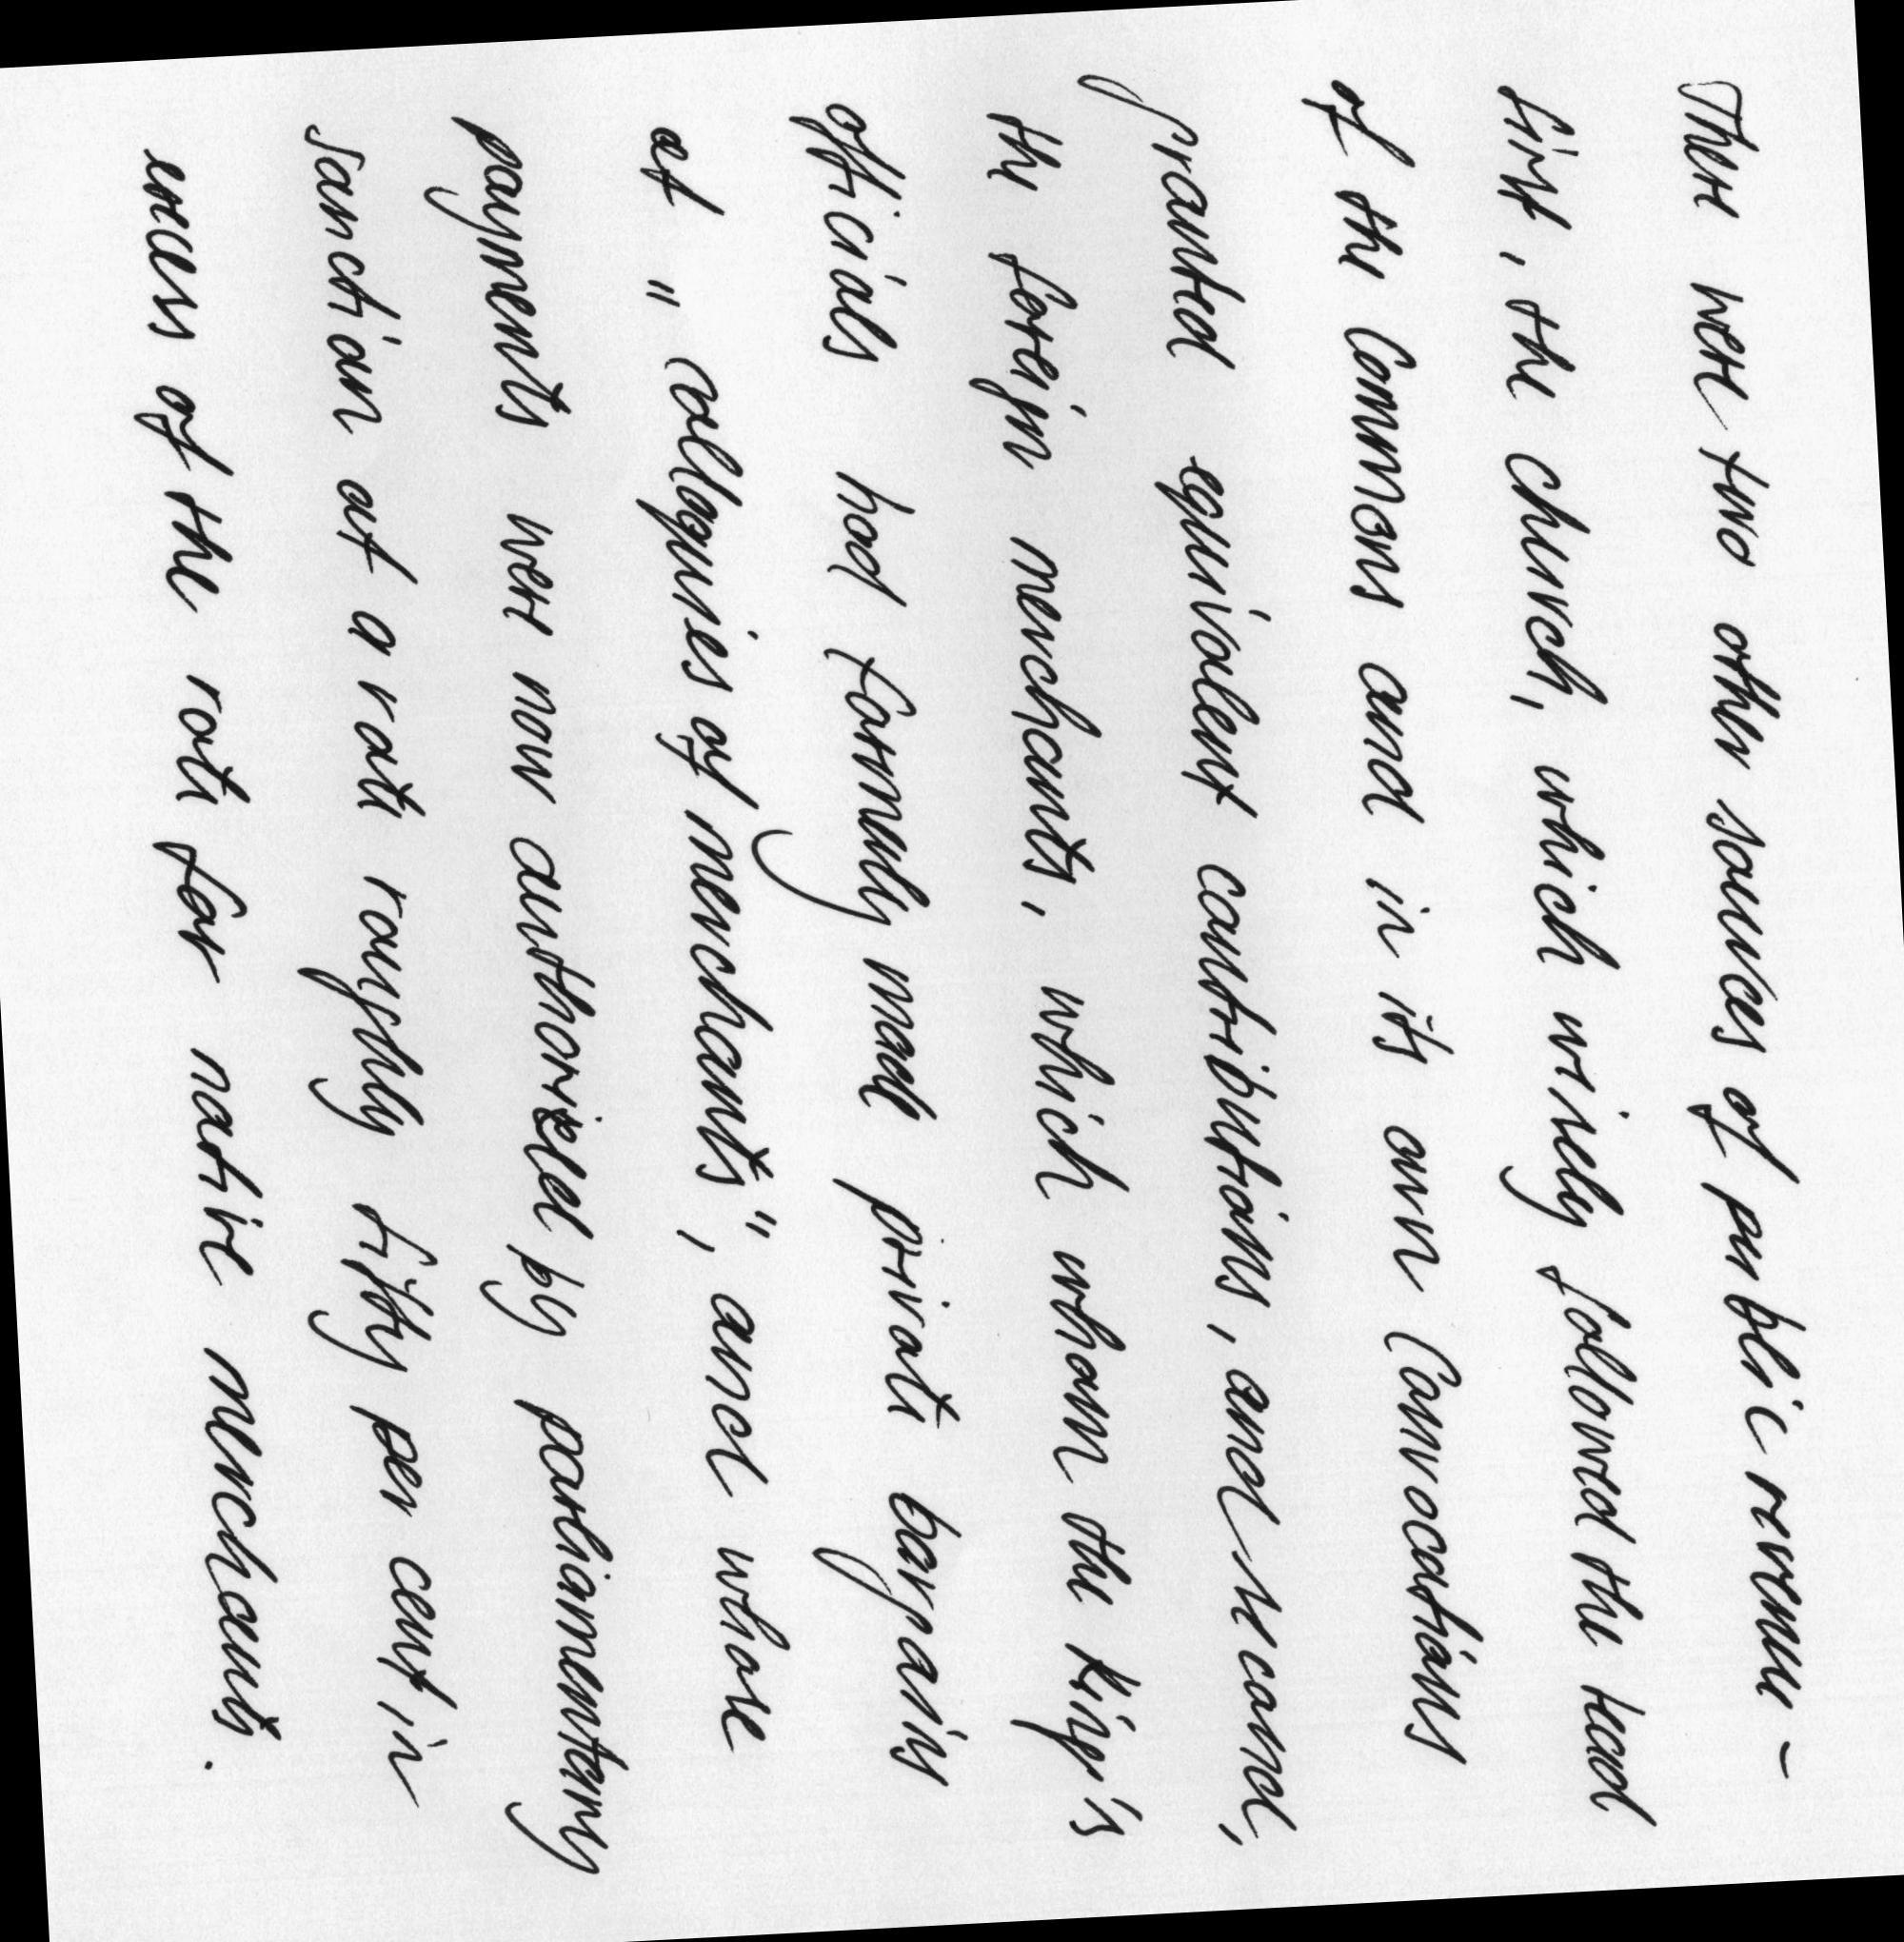 There were two other sources of public revenue -
first, the church, which wisely followed the lead
of the Commons and in its own Convocations
granted equivalent contributions, and second,
the foreign merchants, which whom the King's
officials had formerly made private bargains
at "colloquies of merchants", and whose
payments were now authorised by parliamentary
sanction at a rate roughly fifty per cent in
excess of the rate for native merchants.